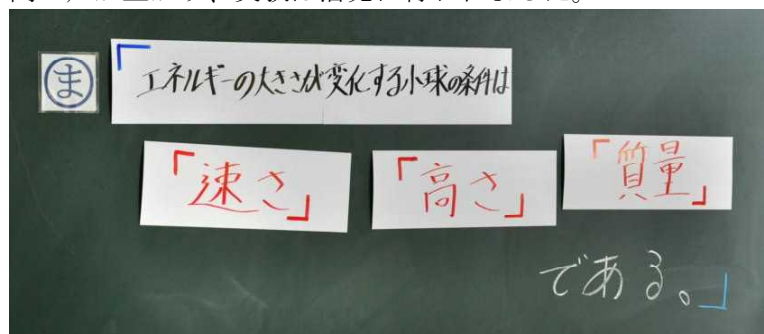 ま
「エネルギーの大きさが変化する小球の条件は
「速さ」 「高さ」 「質量」
である。」